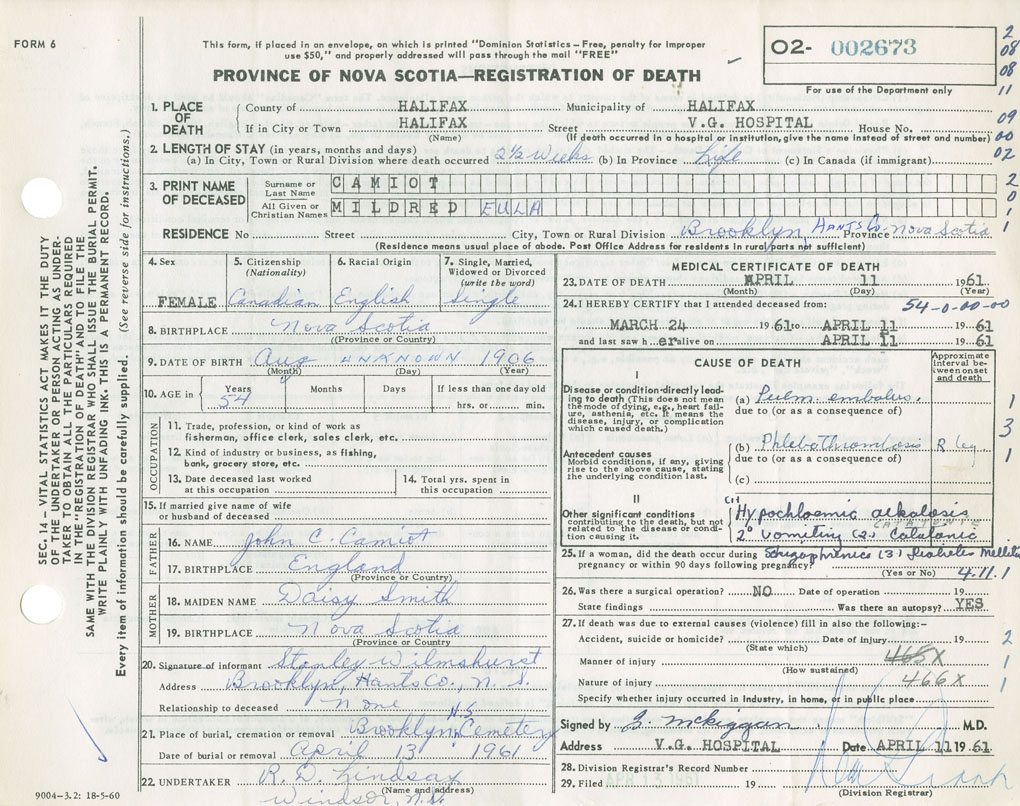 FORM 6
This form, if placed in an envelope, on which is printed "Dominion Statistics – Free, penalty for improper
use $50," and properly addressed will pass through the mail "FREE"
02- 002673
For use of the Department only
PROVINCE OF NOVA SCOTIA—REGISTRATION OF DEATH
2
08
08
11
09
00
02
2
0
1
1
SEC. 14 – VITAL STATISTICS ACT MAKES IT THE DUTY
OF THE UNDERTAKER OR PERSON ACTING AS UNDER-
TAKER TO OBTAIN ALL THE PARTICULARS REQUIRED
IN THE "REGISTRATION OF DEATH" AND TO FILE THE
SAME WITH THE DIVISION REGISTRAR WHO SHALL ISSUE THE BURIAL PERMIT.
WRITE PLAINLY WITH UNFADING INK. THIS IS A PERMANENT RECORD.
Every item of information should be carefully supplied. (See reverse side for instructions.)
1. PLACE OF DEATH
County of HALIFAX Municipality of HALIFAX
If in City or Town HALIFAX Street V.G. HOSPITAL House No.
(Name) (If death occurred in a hospital or institution, give the name instead of street and number)
2. LENGTH OF STAY (in years, months and days)
(a) In City, Town or Rural Division where death occurred 2½ Weeks (b) In Province Life (c) In Canada (if immigrant)
3. PRINT NAME OF DECEASED
Surname or Last Name CAMIOT
All Given or Christian Names MILDRED EULA
RESIDENCE No Street City, Town or Rural Division Brooklyn, HANTS Co Province Nova Scotia
(Residence means usual place of abode. Post Office Address for residents in rural parts not sufficient)
4. Sex FEMALE
5. Citizenship (Nationality) Canadian
6. Racial Origin English
7. Single, Married, Widowed or Divorced (write the word) Single
8. BIRTHPLACE Nova Scotia
(Province or Country)
9. DATE OF BIRTH Aug UNKNOWN 1906
(Month) (Day) (Year)
10. AGE in Years 54 Months Days If less than one day old
hrs. or min.
OCCUPATION
11. Trade, profession, or kind of work as
fisherman, office clerk, sales clerk, etc.
12. Kind of industry or business, as fishing,
bank, grocery store, etc.
13. Date deceased last worked at this occupation
14. Total yrs. spent in this occupation
15. If married give name of wife
or husband of deceased
FATHER
16. NAME John C. Camiot
17. BIRTHPLACE England
(Province or Country)
MOTHER
18. MAIDEN NAME Daisy Smith
19. BIRTHPLACE Nova Scotia
(Province or Country)
20. Signature of informant Stanley Wilmshurst
Address Brooklyn, Hants Co., N.S.
Relationship to deceased None
21. Place of burial, cremation or removal Brooklyn N.S. Cemetery
Date of burial or removal April 13 1961
22. UNDERTAKER R. D. Lindsay
(Name and address)
Windsor, N.S.
9004-3.2: 18-5-60
MEDICAL CERTIFICATE OF DEATH
23. DATE OF DEATH APRIL 11 1961
(Month) (Day) (Year)
24. I HEREBY CERTIFY that I attended deceased from:
54-0-00-00
MARCH 24 1961 to APRIL 11 1961
and last saw h er alive on APRIL 11 1961
CAUSE OF DEATH
Approximate interval between onset and death
I
Disease or condition directly leading to death (This does not mean the mode of dying, e.g., heart failure, asthenia, etc. It means the disease, injury, or complication which caused death.)
(a) Pulm. embolus.
due to (or as a consequence of)
Antecedent causes
Morbid conditions, if any, giving rise to the above cause, stating the underlying condition last.
(b) Phlebothrombosis R leg
due to (or as a consequence of)
(c)
1
3
1
II
Other significant conditions
contributing to the death, but not related to the disease or condition causing it.
(1) Hypochloremic alkalosis
CATATONIC
2° vomiting (2) Catatonic
Schizophrenia (3) Diabetes Mellitus
25. If a woman, did the death occur during
pregnancy or within 90 days following pregnancy?
(Yes or No) 4.11.1
26. Was there a surgical operation? NO Date of operation 19
State findings Was there an autopsy? YES
27. If death was due to external causes (violence) fill in also the following:-
Accident, suicide or homicide? Date of injury 19
(State which)
Manner of injury 465X
(How sustained)
Nature of injury 466X
Specify whether injury occurred in industry, in home, or in public place
2
1
1
Signed by McKiggan M.D.
Address V.G. HOSPITAL Date APRIL 11 1961
28. Division Registrar's Record Number
29. Filed APR 13 1961 19
(Division Registrar)